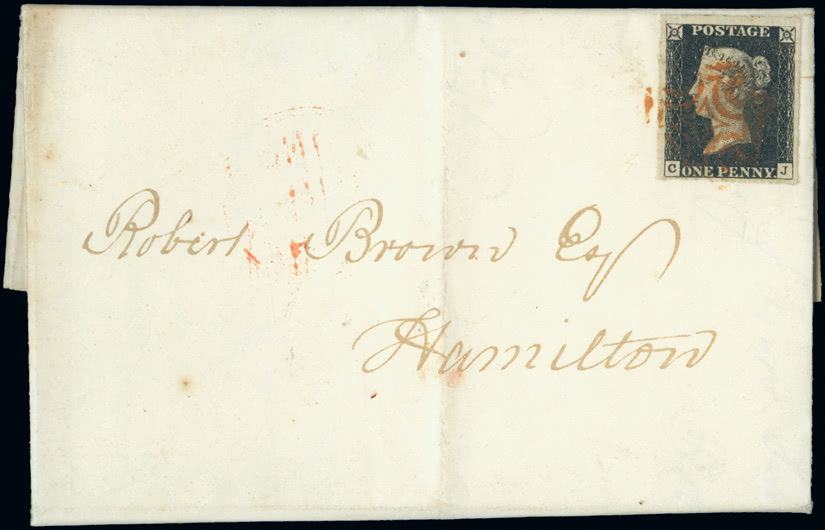 POSTAGE
C J
ONE PENNY.
Robert Brown Esq
Hamilton